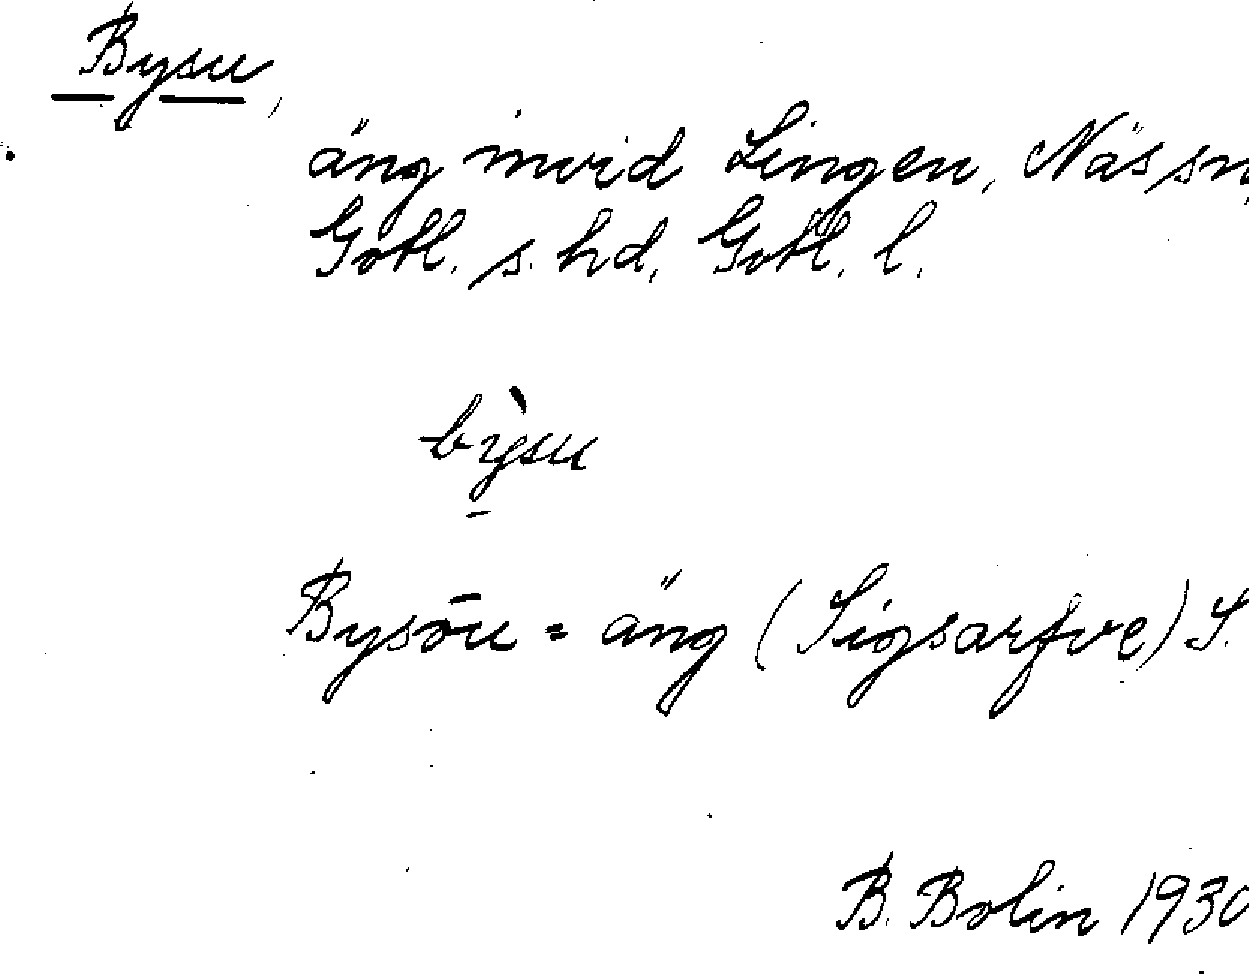 Bysu,
äng invid Lingen, Näs sn,
Gotl. s. hd, Gotl. l.
bỳsu
Bysōu = äng (Sigsarfve) S.
B. Bolin 1930